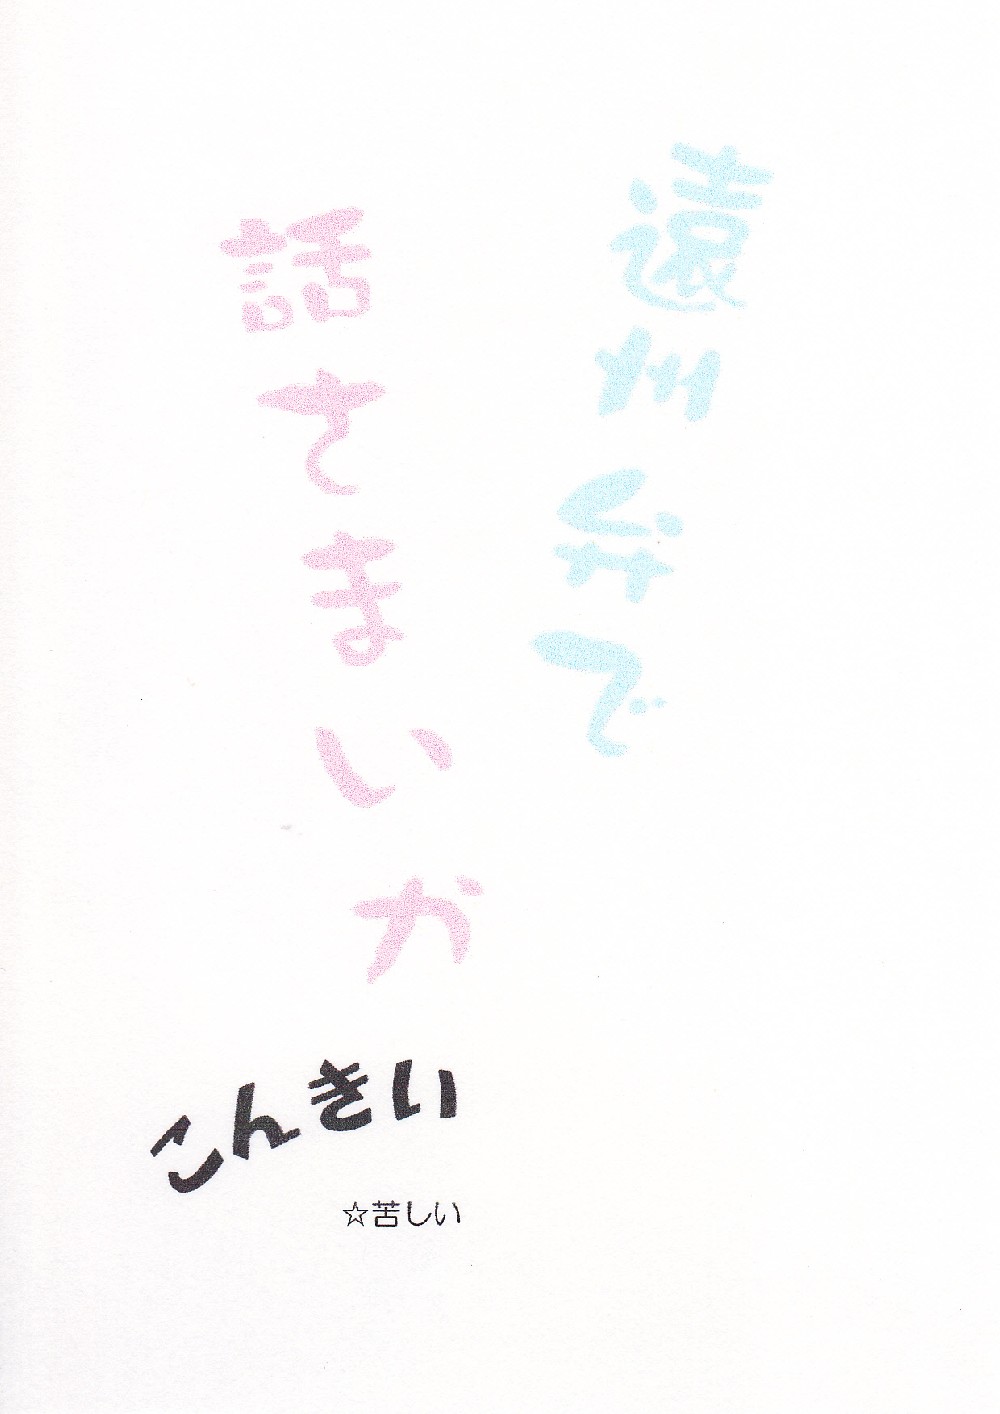 遠州弁で
話さまいか
こんきい
☆苦しい